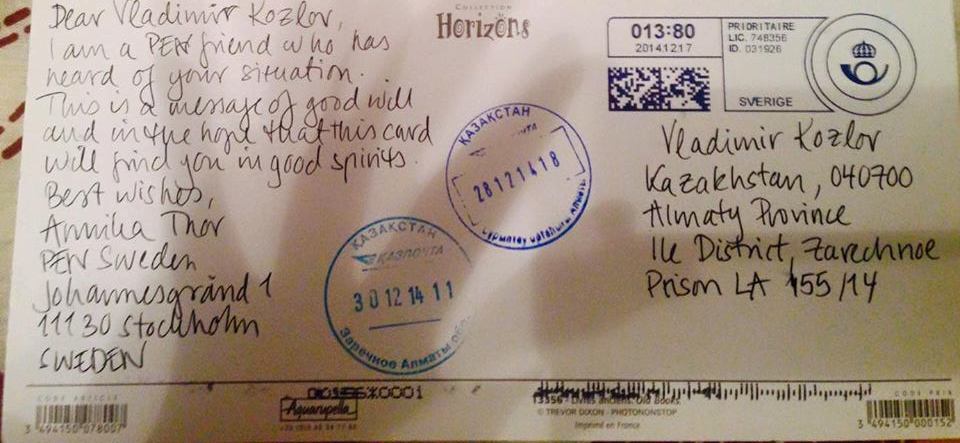 Dear Vladimir Kozlov,
I am a PEN friend who has
heard of your situation.
This is a message of good will
and in the hope that this card
will find you in good spirits.
Best wishes,
Annika Thor
PEN Sweden
Johannesgränd 1
111 30 Stockholm
SWEDEN
COLLECTION
Horizons
013:80
20141217
PRIORITAIRE
LIC. 748356
ID. 031926
SVERIGE
Vladimir Kozlov
Kazakhstan, 040700
Almaty Province
Ile District, Zarechnoe
Prison LA 155/14
КАЗАКСТАН
28121418
КАЗАКСТАН
КАЗПОЧТА
30121411
Заречное Алматы обл
CODE ARTICLE
3 494150 078007
Aquarupella
Old Books
© TREVOR DIXON - PHOTONONSTOP
Imprimé en France
CODE PRIX
3 494150 000152